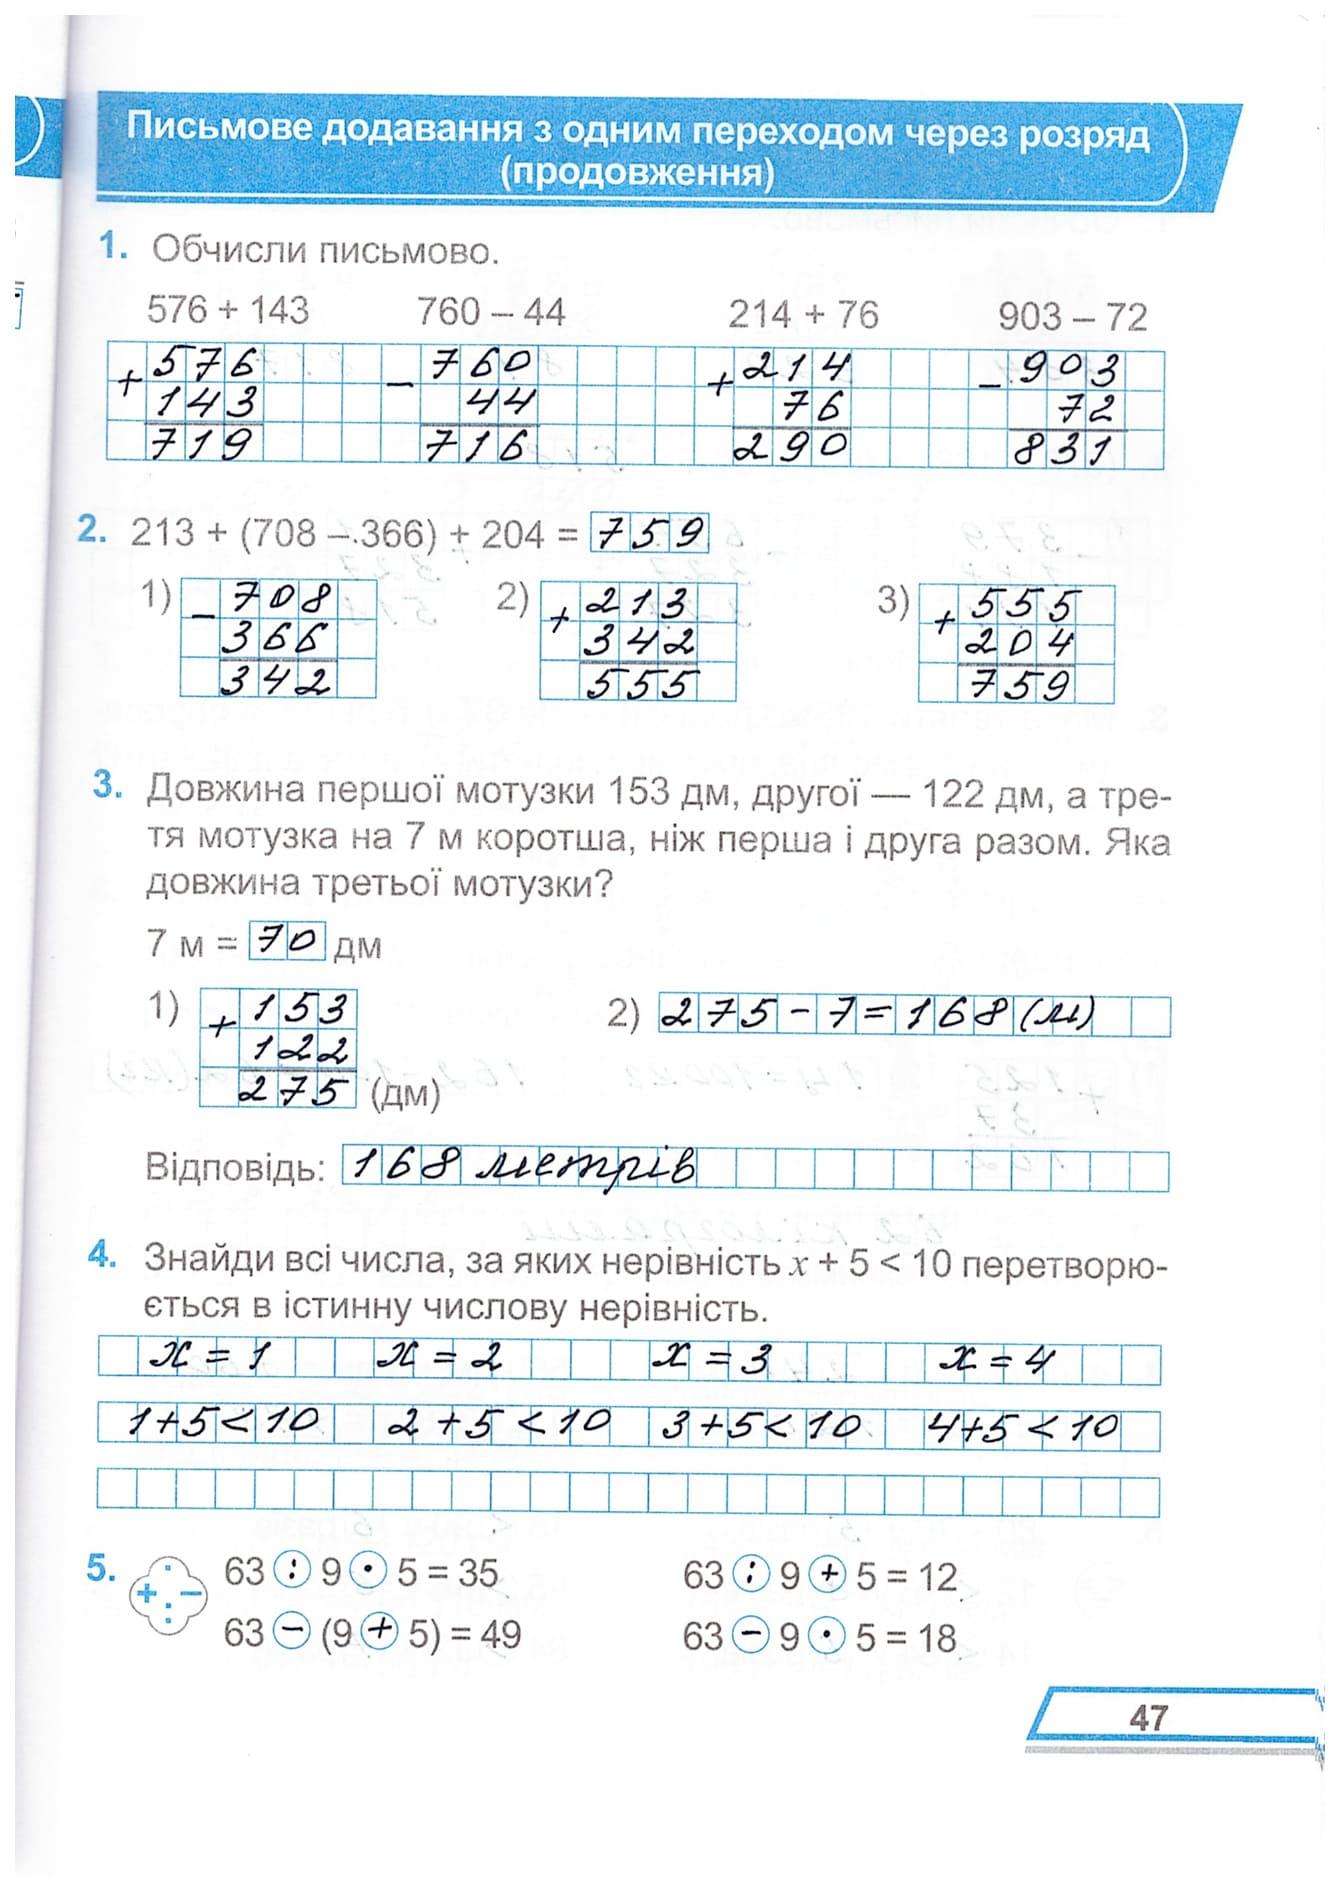 Письмове додавання з одним переходом через розряд
(продовження)
1. Обчисли письмово.
576 + 143 760 – 44 214 + 76 903 – 72
+ 576 – 760 + 214 – 903
143 44 76 72
719 716 290 831
2. 213 + (708 – 366) + 204 = 759
1) – 708 2) + 213 3) + 555
366 342 204
342 555 759
3. Довжина першої мотузки 153 дм, другої — 122 дм, а тре-
тя мотузка на 7 м коротша, ніж перша і друга разом. Яка
довжина третьої мотузки?
7 м = 70 дм
1) + 153 2) 275 – 7 = 168 (м)
122
275 (дм)
Відповідь: 168 метрів
4. Знайди всі числа, за яких нерівність x + 5 < 10 перетворю-
ється в істинну числову нерівність.
x = 1 x = 2 x = 3 x = 4
1+5<10 2+5<10 3+5<10 4+5<10
5. 63 : 9 · 5 = 35 63 : 9 + 5 = 12
+ · – :
63 – (9 + 5) = 49 63 – 9 · 5 = 18
47